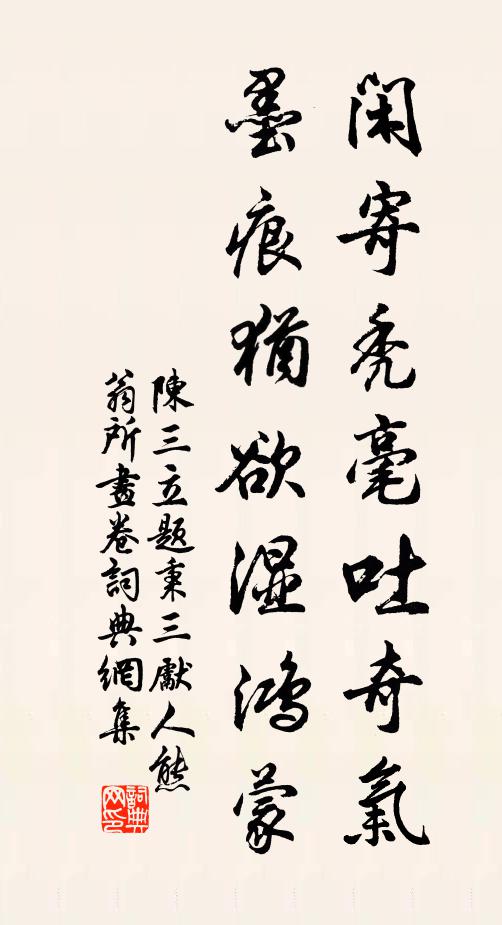 閑寄禿毫吐奇氣
墨痕猶欲濕鴻蒙
陳三立題秉三獻人熊
翁所畫卷詞典網集
詞典网印